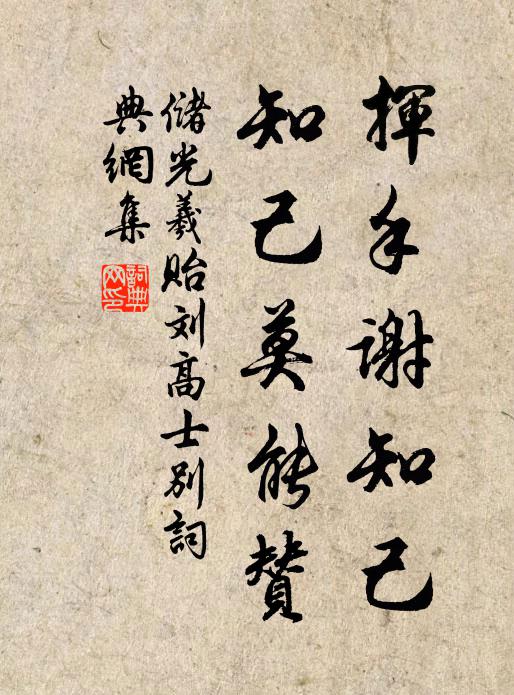 揮手謝知己
知己莫能贊
儲光羲貽刘高士別詞
典網集
詞典網印